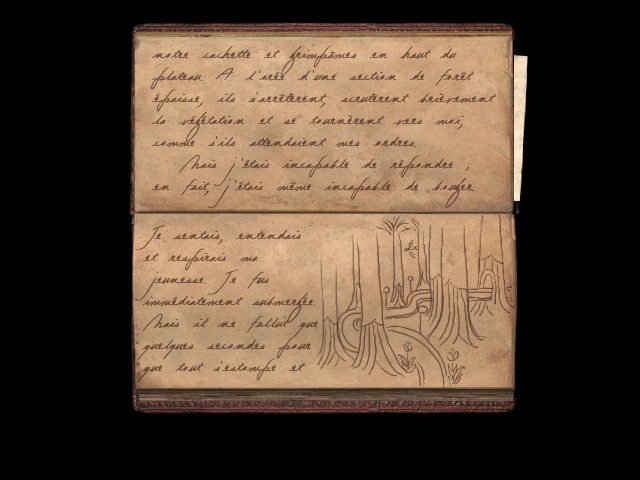 notre cachette et grimpâmes en haut du
plateau. A l'orée d'une section de forêt
épaisse, ils s'arrêtèrent, scrutèrent brièvement
la végétation et se tournèrent vers moi,
comme s'ils attendaient mes ordres.
Mais j'étais incapable de répondre ;
en fait, j'étais même incapable de bouger.
Je sentais, entendais
et respirais ma
jeunesse. Je fus
immédiatement submergée.
Mais il ne fallut que
quelques secondes pour
que tout s'estompe et